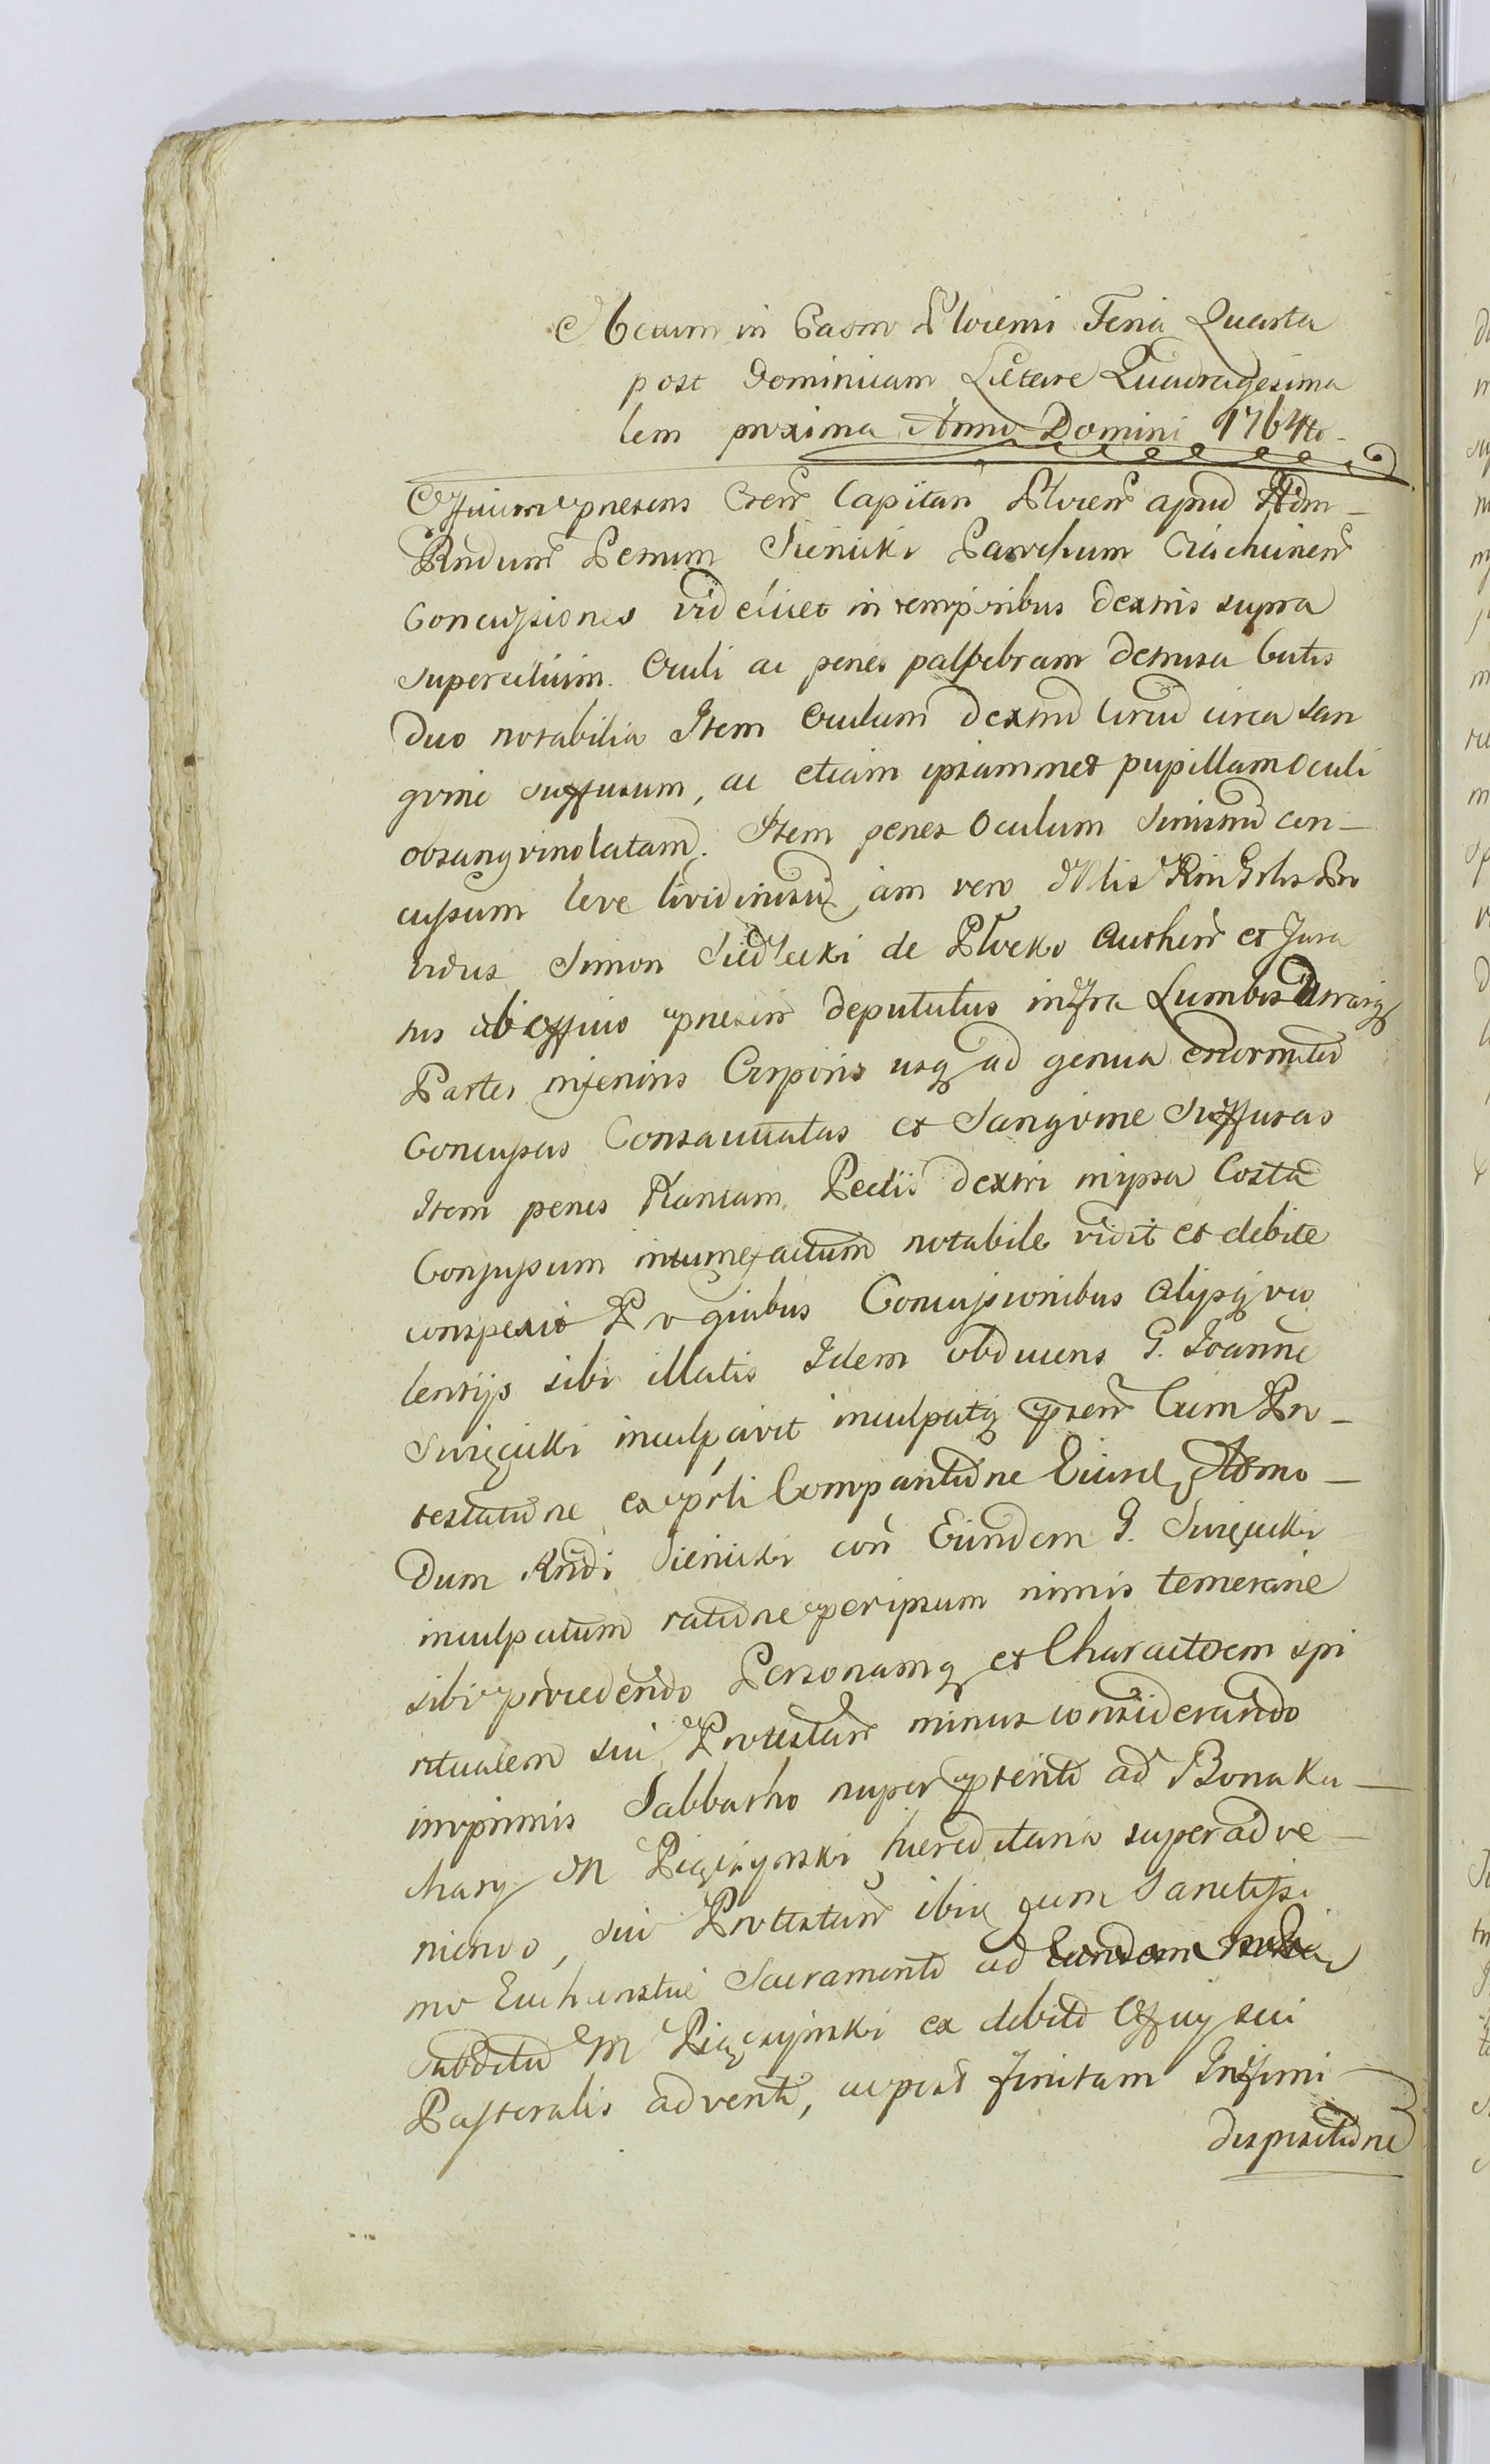 Actum in Castro Plocensi Feria Quarta
post Dominicam Lætare Quadragesima
lem proxima Anno Domini 1764to
Officium præsens Cren Capitan Plocen apud Adm
Rndum Petrum Sienicki Parochum
Concussiones videlicet in temporibus dextris supra
supercilium Oculi ac penes palpebram detrusa Cutis
duo notabilia Item Oculum dextrũ circũ circa San
gvine suffusum, ac etiam ipsammet pupillam Oculi
obsangvinolatam. Item penes Oculum Sinistrũ con
cussum leve lividinosũ, iam vero Mlis Ring Pro
vidus Simon Siedlecki de Plocko Authen et Jura
tus ab Officio præsen deputatus infra Lumbos
Partes inferioris Corporis usq ad genua enormiter
Concussas Consauciatas et Sangvine Suffusas
Item penes Plantam Pedis dextri in ipsa Costa
Confusum intumefactum notabile vidit et debite
conspexit Pro qũibus Concussionibus alijsq vio
lentijs sibi illatis Idem obducens G. Joannē
Swięcicki inculpavit inculpatq præsen Cum Pro
testatione ex pрli Comparitione Eiusd Admo
dum Rndi Sienicki con Eundem G. Swięcicki
inculpatum ratione per ipsum nimis temerarie
sibi procedendo Personamq et Characterem spi
ritualem sui Protestan minus considerando
imprimis Sabbatho nuper præterito ad Bona Ku
chary M Pięczynski hæreditaria superadve
niendo, sui Protestan ibiq cum Sanctissi
mo Eucharistiæ Sacramento ad
Subditũ M Pięczynski ex debito Officij sui
Pastoralis advento, ac post finitam Infirmi
dispositione